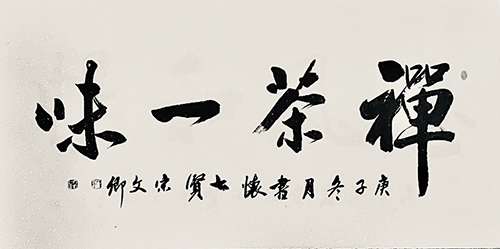 禪茶一味
庚子冬月書懷七賢宋文卿